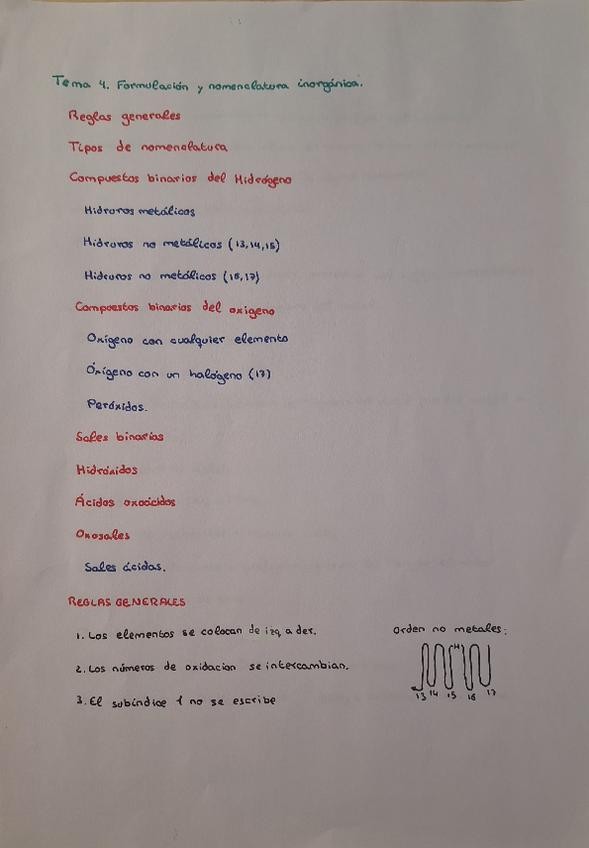 Tema 4. Formulación y nomenclatura inorgánica.
Reglas generales
Tipos de nomenclatura
Compuestos binarios del Hidrógeno
Hidruros metálicos
Hidruros no metálicos (13,14,15)
Hidruros no metálicos (16,17)
Compuestos binarios del oxígeno
Oxígeno con cualquier elemento
Oxígeno con un halógeno (17)
Peróxidos.
Sales binarias
Hidróxidos
Ácidos oxoácidos
Oxosales
Sales ácidas.
REGLAS GENERALES
1. Los elementos se colocan de izq a der.
Orden no metales:
2. Los números de oxidacion se intercambian.
H
3. El subíndice 1 no se escribe
13 14 15 16 17